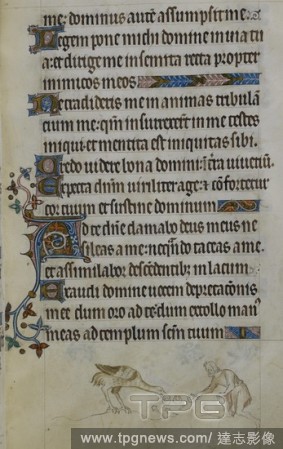 me: dominus autē assumpsit me.
Legem pone michi domine in uia tu
a: et dirige me in semita recta propter
inimicos meos
Ne tradideris me in animas tribulā
cium me: qm̄ insurrexerūt in me testes
iniqui et mentita est iniquitas sibi.
Credo uidere bona domini: in t̄ra uiuenciū.
Expecta dn̄m uiriliter age: & cōfortetur
cor tuum et sustine dominum
Ad te dn̄e clamabo deus meus ne
sileas a me: neqn̄do taceas a me.
et assimilabor descēdentib; in lacum
Exaudi domine uocem deprecacōnis
mee dum oro ad te: dum extollo man᷒
meas ad templum scm̄ tuum
TPG
www.tpgnews.com/ 達志影像